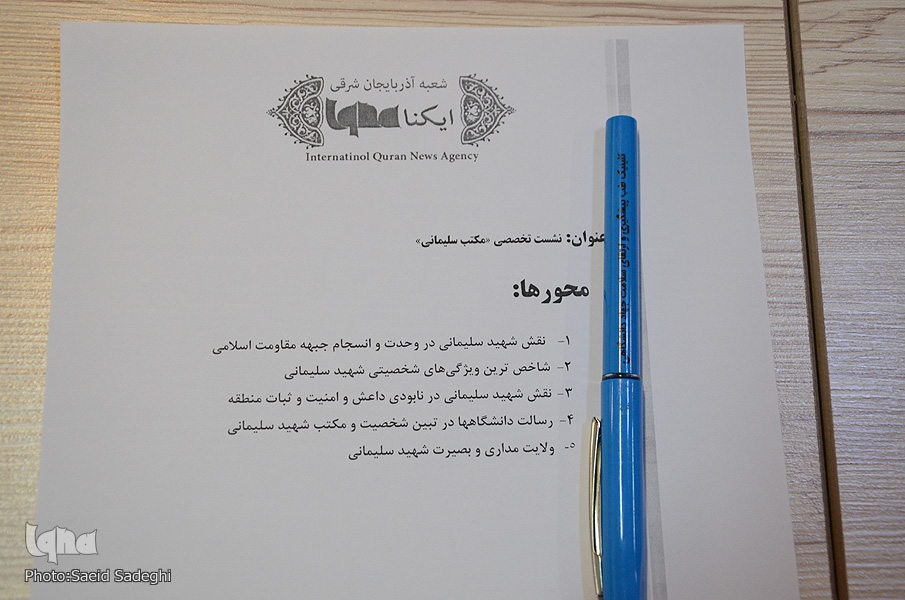 شعبه آذربایجان شرقی
ایکنا iqna
Internatinol Quran News Agency
عنوان: نشست تخصصی «مکتب سلیمانی»
محورها:
۱- نقش شهید سلیمانی در وحدت و انسجام جبهه مقاومت اسلامی
۲- شاخص ترین ویژگی‌های شخصیتی شهید سلیمانی
۳- نقش شهید سلیمانی در نابودی داعش و امنیت و ثبات منطقه
۴- رسالت دانشگاهها در تبین شخصیت و مکتب شهید سلیمانی
۵- ولایت مداری و بصیرت شهید سلیمانی
کلینیک طب پیشگیری و ارتقای سلامت جهاد دانشگاهی
iqna
Photo:Saeid Sadeghi